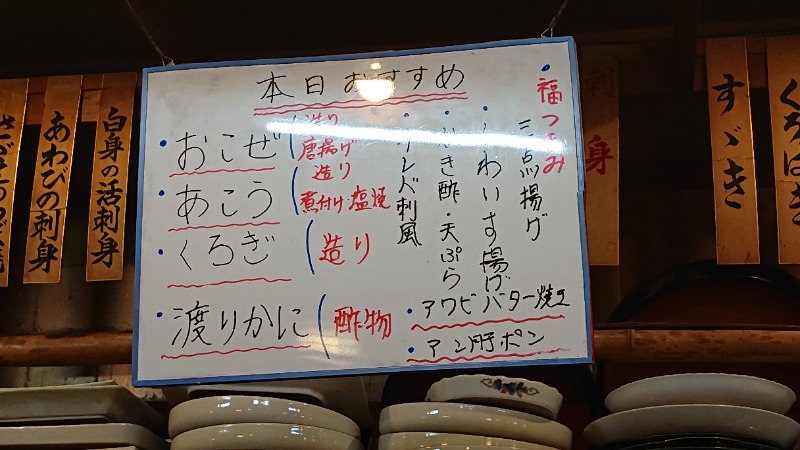 本日おすすめ
・おこぜ（造り
唐揚げ
・あこう（造り
煮付け・塩焼
・くろぎ（造り
・渡りかに（酢物
・福つまみ
三点揚げ
・くわいす揚げ
き酢・天ぷら
刺風
・アワビバター焼き
・アン肝ポン
あわびの刺身
白身の活刺身
刺身
すゞき
くろはぎ